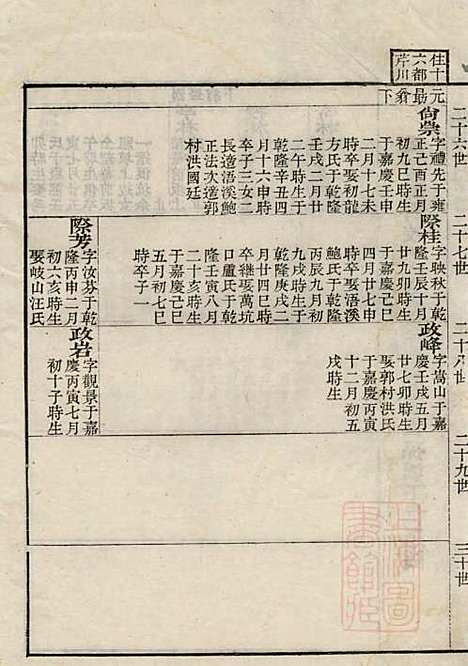 住十
六都
芹川
元最
翁
下
二十六世
二十七世
二十八世
二十九世
三十世
尙票
字禮先于雍
正己酉正月
初九巳時生
于嘉慶壬申
二月十七未
時卒娶初龍
方氏于乾隆
壬戌二月廿
二午時生于
乾隆辛丑四
月十六申時
卒子三女二
長適浯溪鮑
正法次適郭
村洪國廷
際桂
字映秋于乾
隆壬辰十月
廿九卯時生
于嘉慶己卯
四月廿七申
時卒娶浯溪
鮑氏于乾隆
丙辰九月初
九戌時生于
乾隆庚戌二
月廿四巳時
卒継娶萬坑
口盧氏于乾
隆壬寅八月
二十亥時生
于嘉慶己巳
五月初七巳
時卒子一
政峰
字嵩山于嘉
慶壬戌五月
廿七卯時生
娶郭村洪氏
于嘉慶丙寅
十二月初五
戌時生
際芳
字汝芬于乾
隆丙申二月
初六亥時生
娶岐山汪氏
政岩
字觀景于嘉
慶丙寅七月
初十子時生
上海圖
書館藏